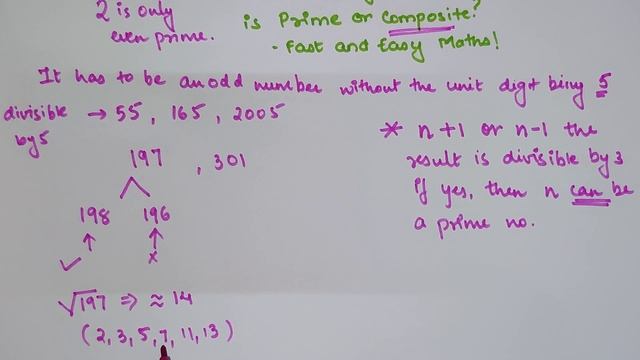 2 is only
even prime.
is Prime or Composite?
- Fast and Easy Maths!
It has to be an odd number without the unit digit being 5
divisible → 55, 165, 2005
by 5
197, 301
198 196
✓ ×
√197 ⇒ ≈ 14
(2, 3, 5, 7, 11, 13)
* n+1 or n-1 the
result is divisible by 3
If yes, then n can be
a prime no.